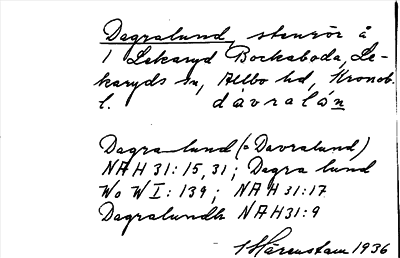 Dagralund, stenrör å
1 Lekaryd Bockaboda, Le-
karyds sn, Allbo hd, Kronob.
l. dávralán
Dagra-lund (= Davralund)
NAH 31:15, 31; Dagra lund
Wo W I: 139; NAH 31:17
Dagralundh NAH 31:9
Härenstam 1936